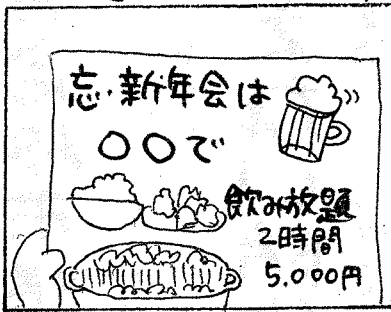 忘・新年会は
○○で
飲み放題
2時間
5.000円